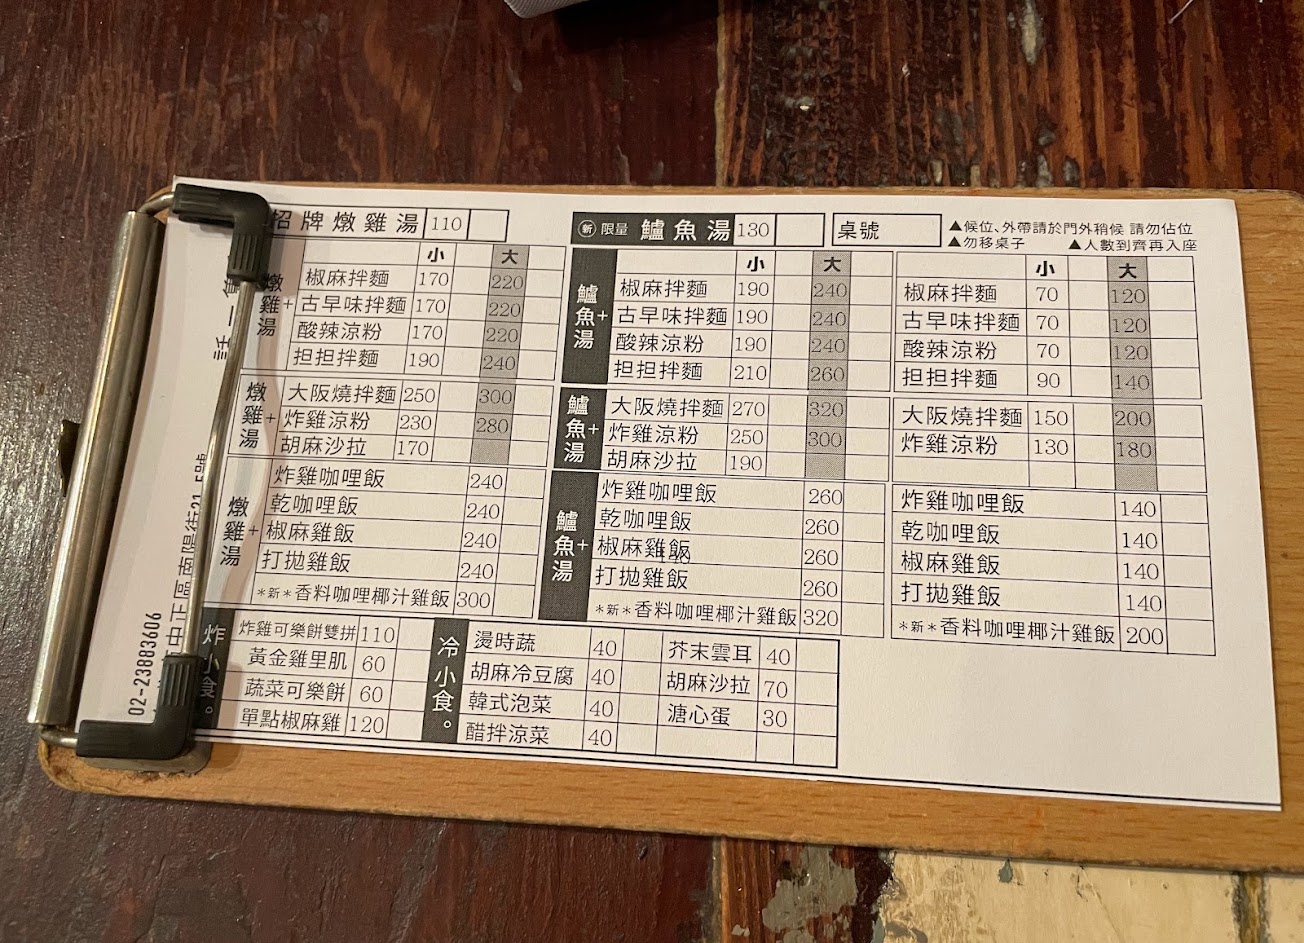 招牌燉雞湯 110
小 大
燉雞湯+
椒麻拌麵 170 220
古早味拌麵 170 220
酸辣涼粉 170 220
担担拌麵 190 240
燉雞湯+
大阪燒拌麵 250 300
炸雞涼粉 230 280
胡麻沙拉 170
燉雞湯+
炸雞咖哩飯 240
乾咖哩飯 240
椒麻雞飯 240
打拋雞飯 240
*新*香料咖哩椰汁雞飯 300
新 限量 鱸魚湯 130
小 大
鱸魚湯+
椒麻拌麵 190 240
古早味拌麵 190 240
酸辣涼粉 190 240
担担拌麵 210 260
鱸魚湯+
大阪燒拌麵 270 320
炸雞涼粉 250 300
胡麻沙拉 190
鱸魚湯+
炸雞咖哩飯 260
乾咖哩飯 260
椒麻雞飯 260
打拋雞飯 260
*新*香料咖哩椰汁雞飯 320
桌號
▲候位、外帶請於門外稍候 請勿佔位
▲勿移桌子 ▲人數到齊再入座
小 大
椒麻拌麵 70 120
古早味拌麵 70 120
酸辣涼粉 70 120
担担拌麵 90 140
大阪燒拌麵 150 200
炸雞涼粉 130 180
炸雞咖哩飯 140
乾咖哩飯 140
椒麻雞飯 140
打拋雞飯 140
*新*香料咖哩椰汁雞飯 200
炸小食。
炸雞可樂餅雙拼 110
黃金雞里肌 60
蔬菜可樂餅 60
單點椒麻雞 120
冷小食。
燙時蔬 40
胡麻冷豆腐 40
韓式泡菜 40
醋拌涼菜 40
芥末雲耳 40
胡麻沙拉 70
溏心蛋 30
中正區南陽街
02-23883606